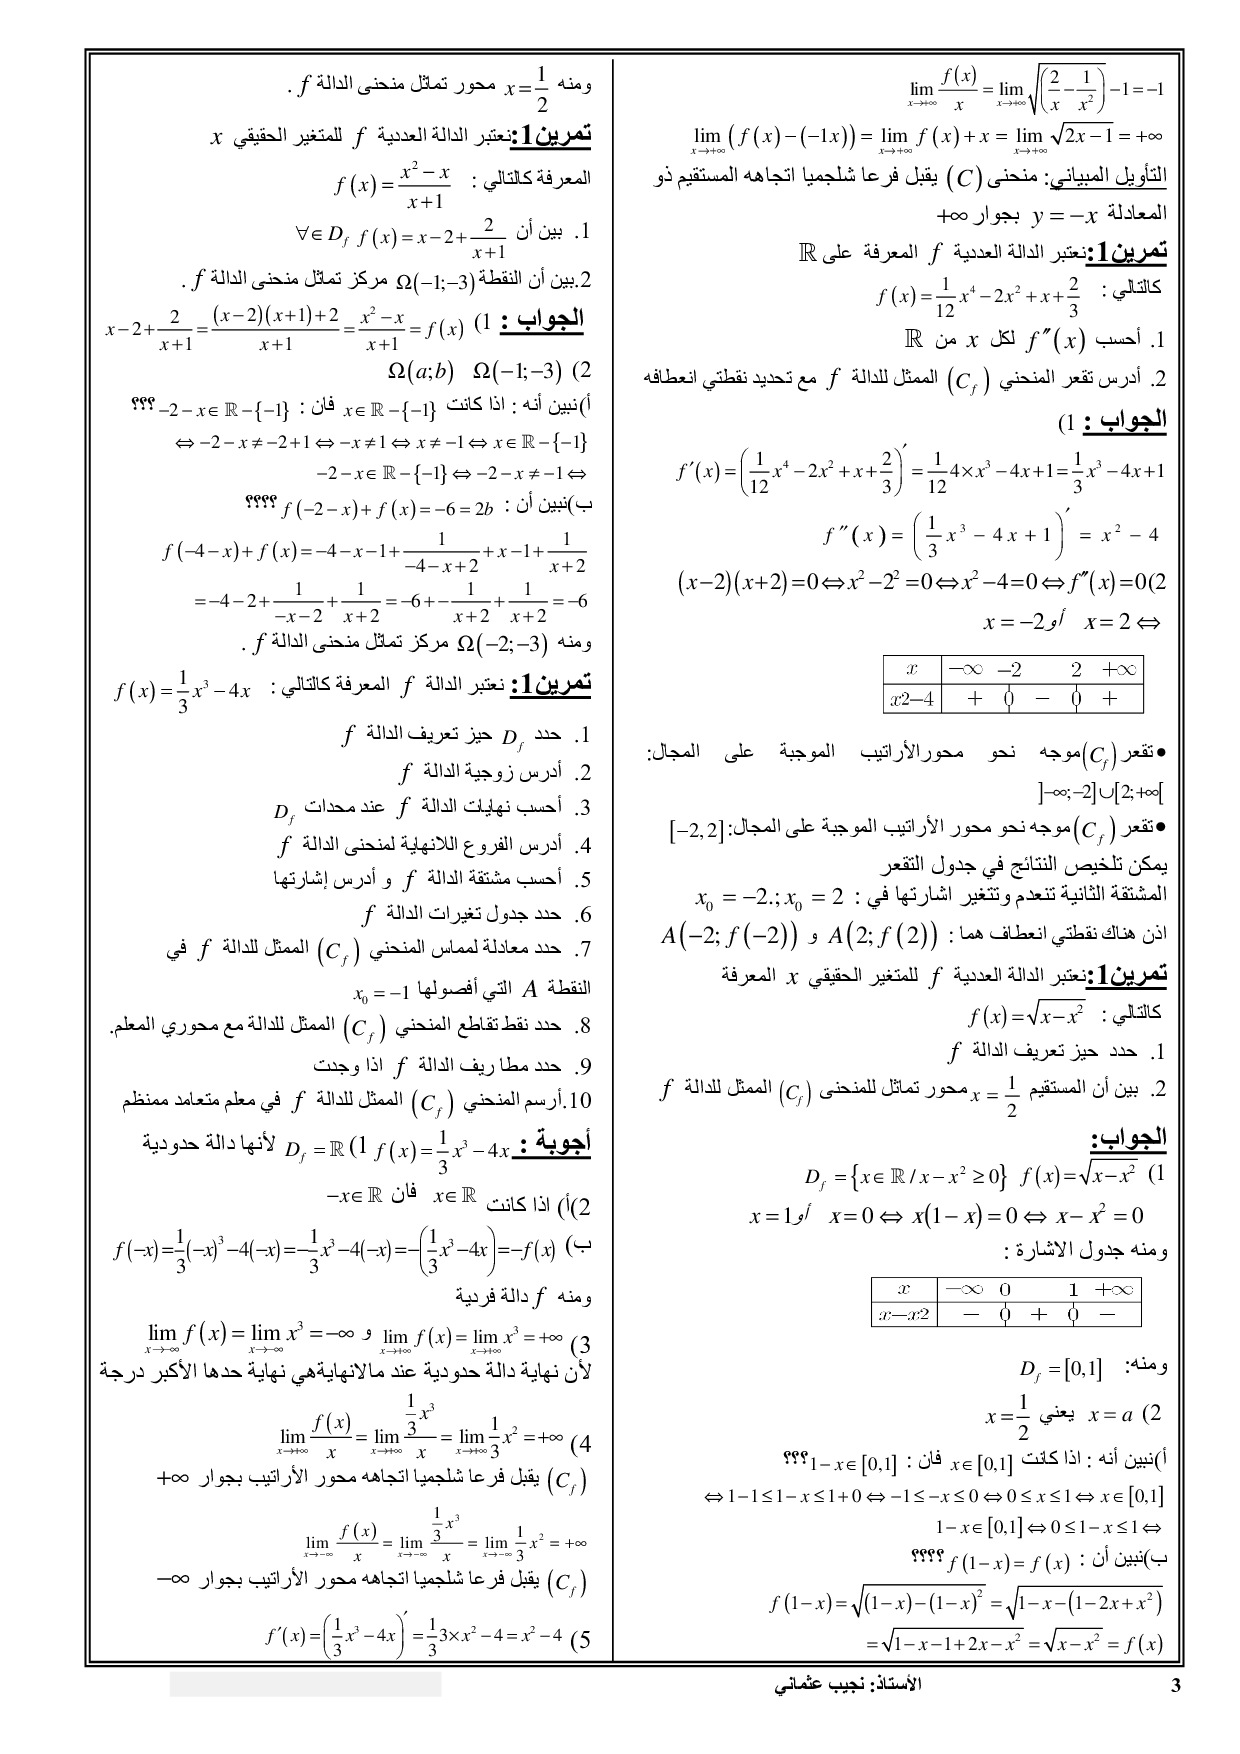 lim_{x→+∞} f(x)/x = lim_{x→+∞} √(2/x − 1/x²) − 1 = −1
lim_{x→+∞} (f(x) − (−1x)) = lim_{x→+∞} f(x) + x = lim_{x→+∞} √2x−1 = +∞
التأويل المبياني: منحنى (C) يقبل فرعا شلجميا اتجاهه المستقيم ذو
المعادلة y = −x بجوار +∞
تمرين1:نعتبر الدالة العددية f المعرفة على ℝ
كالتالي : f(x) = 1/12 x⁴ − 2x² + x + 2/3
1. أحسب f″(x) لكل x من ℝ
2. أدرس تقعر المنحني (C_f) الممثل للدالة f مع تحديد نقطتي انعطافه
الجواب : 1)
f′(x) = (1/12 x⁴ − 2x² + x + 2/3)′ = 1/12 4×x³ − 4x + 1 = 1/3 x³ − 4x + 1
f″(x) = (1/3 x³ − 4x + 1)′ = x² − 4
(x−2)(x+2) = 0 ⇔ x² − 2² = 0 ⇔ x² − 4 = 0 ⇔ f″(x) = 0 (2
⇔ x = 2 أو x = −2
x −∞ −2 2 +∞
x2−4 + 0 − 0 +
•تقعر (C_f) موجه نحو محورالأراتيب الموجبة على المجال:
]−∞;−2]∪[2;+∞[
•تقعر (C_f) موجه نحو محور الأراتيب الموجبة على المجال: [−2,2]
يمكن تلخيص النتائج في جدول التقعر
المشتقة الثانية تنعدم وتتغير اشارتها في : x₀ = −2.; x₀ = 2
اذن هناك نقطتي انعطاف هما : A(2; f(2)) و A(−2; f(−2))
تمرين1:نعتبر الدالة العددية f للمتغير الحقيقي x المعرفة
كالتالي : f(x) = √x−x²
1. حدد حيز تعريف الدالة f
2. بين أن المستقيم x = 1/2 محور تماثل للمنحنى (C_f) الممثل للدالة f
الجواب:
1) f(x) = √x−x² D_f = {x∈ℝ / x−x² ≥ 0}
x − x² = 0 ⇔ x(1−x) = 0 ⇔ x = 0 أو x = 1
ومنه جدول الاشارة :
x −∞ 0 1 +∞
x−x2 − 0 + 0 −
ومنه: D_f = [0,1]
2) x = a يعني x = 1/2
أ)نبين أنه : اذا كانت x∈[0,1] فان : 1−x∈[0,1]؟؟؟
⇔ 1−1 ≤ 1−x ≤ 1+0 ⇔ −1 ≤ −x ≤ 0 ⇔ 0 ≤ x ≤ 1 ⇔ x∈[0,1]
1−x∈[0,1] ⇔ 0 ≤ 1−x ≤ 1 ⇔
ب)نبين أن : f(1−x) = f(x) ؟؟؟؟
f(1−x) = √(1−x)−(1−x)² = √1−x−(1−2x+x²)
= √1−x−1+2x−x² = √x−x² = f(x)
ومنه x = 1/2 محور تماثل منحنى الدالة f .
تمرين1:نعتبر الدالة العددية f للمتغير الحقيقي x
المعرفة كالتالي : f(x) = (x²−x)/(x+1)
1. بين أن f(x) = x−2+ 2/(x+1) ∀∈D_f
2.بين أن النقطة Ω(−1;−3) مركز تماثل منحنى الدالة f .
الجواب : 1) x−2+ 2/(x+1) = ((x−2)(x+1)+2)/(x+1) = (x²−x)/(x+1) = f(x)
2) Ω(−1;−3) Ω(a;b)
أ)نبين أنه : اذا كانت x∈ℝ−{−1} فان : −2−x∈ℝ−{−1} ؟؟؟
⇔ −2−x ≠ −2+1 ⇔ −x ≠ 1 ⇔ x ≠ −1 ⇔ x∈ℝ−{−1}
−2−x∈ℝ−{−1} ⇔ −2−x ≠ −1 ⇔
ب)نبين أن : f(−2−x)+f(x) = −6 = 2b ؟؟؟؟
f(−4−x)+f(x) = −4−x−1+ 1/(−4−x+2) + x−1+ 1/(x+2)
= −4−2+ 1/(−x−2) + 1/(x+2) = −6+− 1/(x+2) + 1/(x+2) = −6
ومنه Ω(−2;−3) مركز تماثل منحنى الدالة f .
تمرين1: نعتبر الدالة f المعرفة كالتالي : f(x) = 1/3 x³ − 4x
1. حدد D_f حيز تعريف الدالة f
2. أدرس زوجية الدالة f
3. أحسب نهايات الدالة f عند محدات D_f
4. أدرس الفروع اللانهاية لمنحنى الدالة f
5. أحسب مشتقة الدالة f و أدرس إشارتها
6. حدد جدول تغيرات الدالة f
7. حدد معادلة لمماس المنحني (C_f) الممثل للدالة f في
النقطة A التي أفصولها x₀ = −1
8. حدد نقط تقاطع المنحني (C_f) الممثل للدالة مع محوري المعلم.
9. حدد مطا ريف الدالة f اذا وجدت
10.أرسم المنحني (C_f) الممثل للدالة f في معلم متعامد ممنظم
أجوبة : f(x) = 1/3 x³ − 4x 1) D_f = ℝ لأنها دالة حدودية
2)أ) اذا كانت x∈ℝ فان −x∈ℝ
ب) f(−x) = 1/3(−x)³ − 4(−x) = −1/3 x³ − 4(−x) = −(1/3 x³ − 4x) = −f(x)
ومنه f دالة فردية
3) lim_{x→+∞} f(x) = lim_{x→+∞} x³ = +∞ و lim_{x→−∞} f(x) = lim_{x→−∞} x³ = −∞
لأن نهاية دالة حدودية عند مالانهايةهي نهاية حدها الأكبر درجة
4) lim_{x→+∞} f(x)/x = lim_{x→+∞} (1/3 x³)/x = lim_{x→+∞} 1/3 x² = +∞
(C_f) يقبل فرعا شلجميا اتجاهه محور الأراتيب بجوار +∞
lim_{x→−∞} f(x)/x = lim_{x→−∞} (1/3 x³)/x = lim_{x→−∞} 1/3 x² = +∞
(C_f) يقبل فرعا شلجميا اتجاهه محور الأراتيب بجوار −∞
5) f′(x) = (1/3 x³ − 4x)′ = 1/3 3×x² − 4 = x² − 4
الأستاذ: نجيب عثماني
3